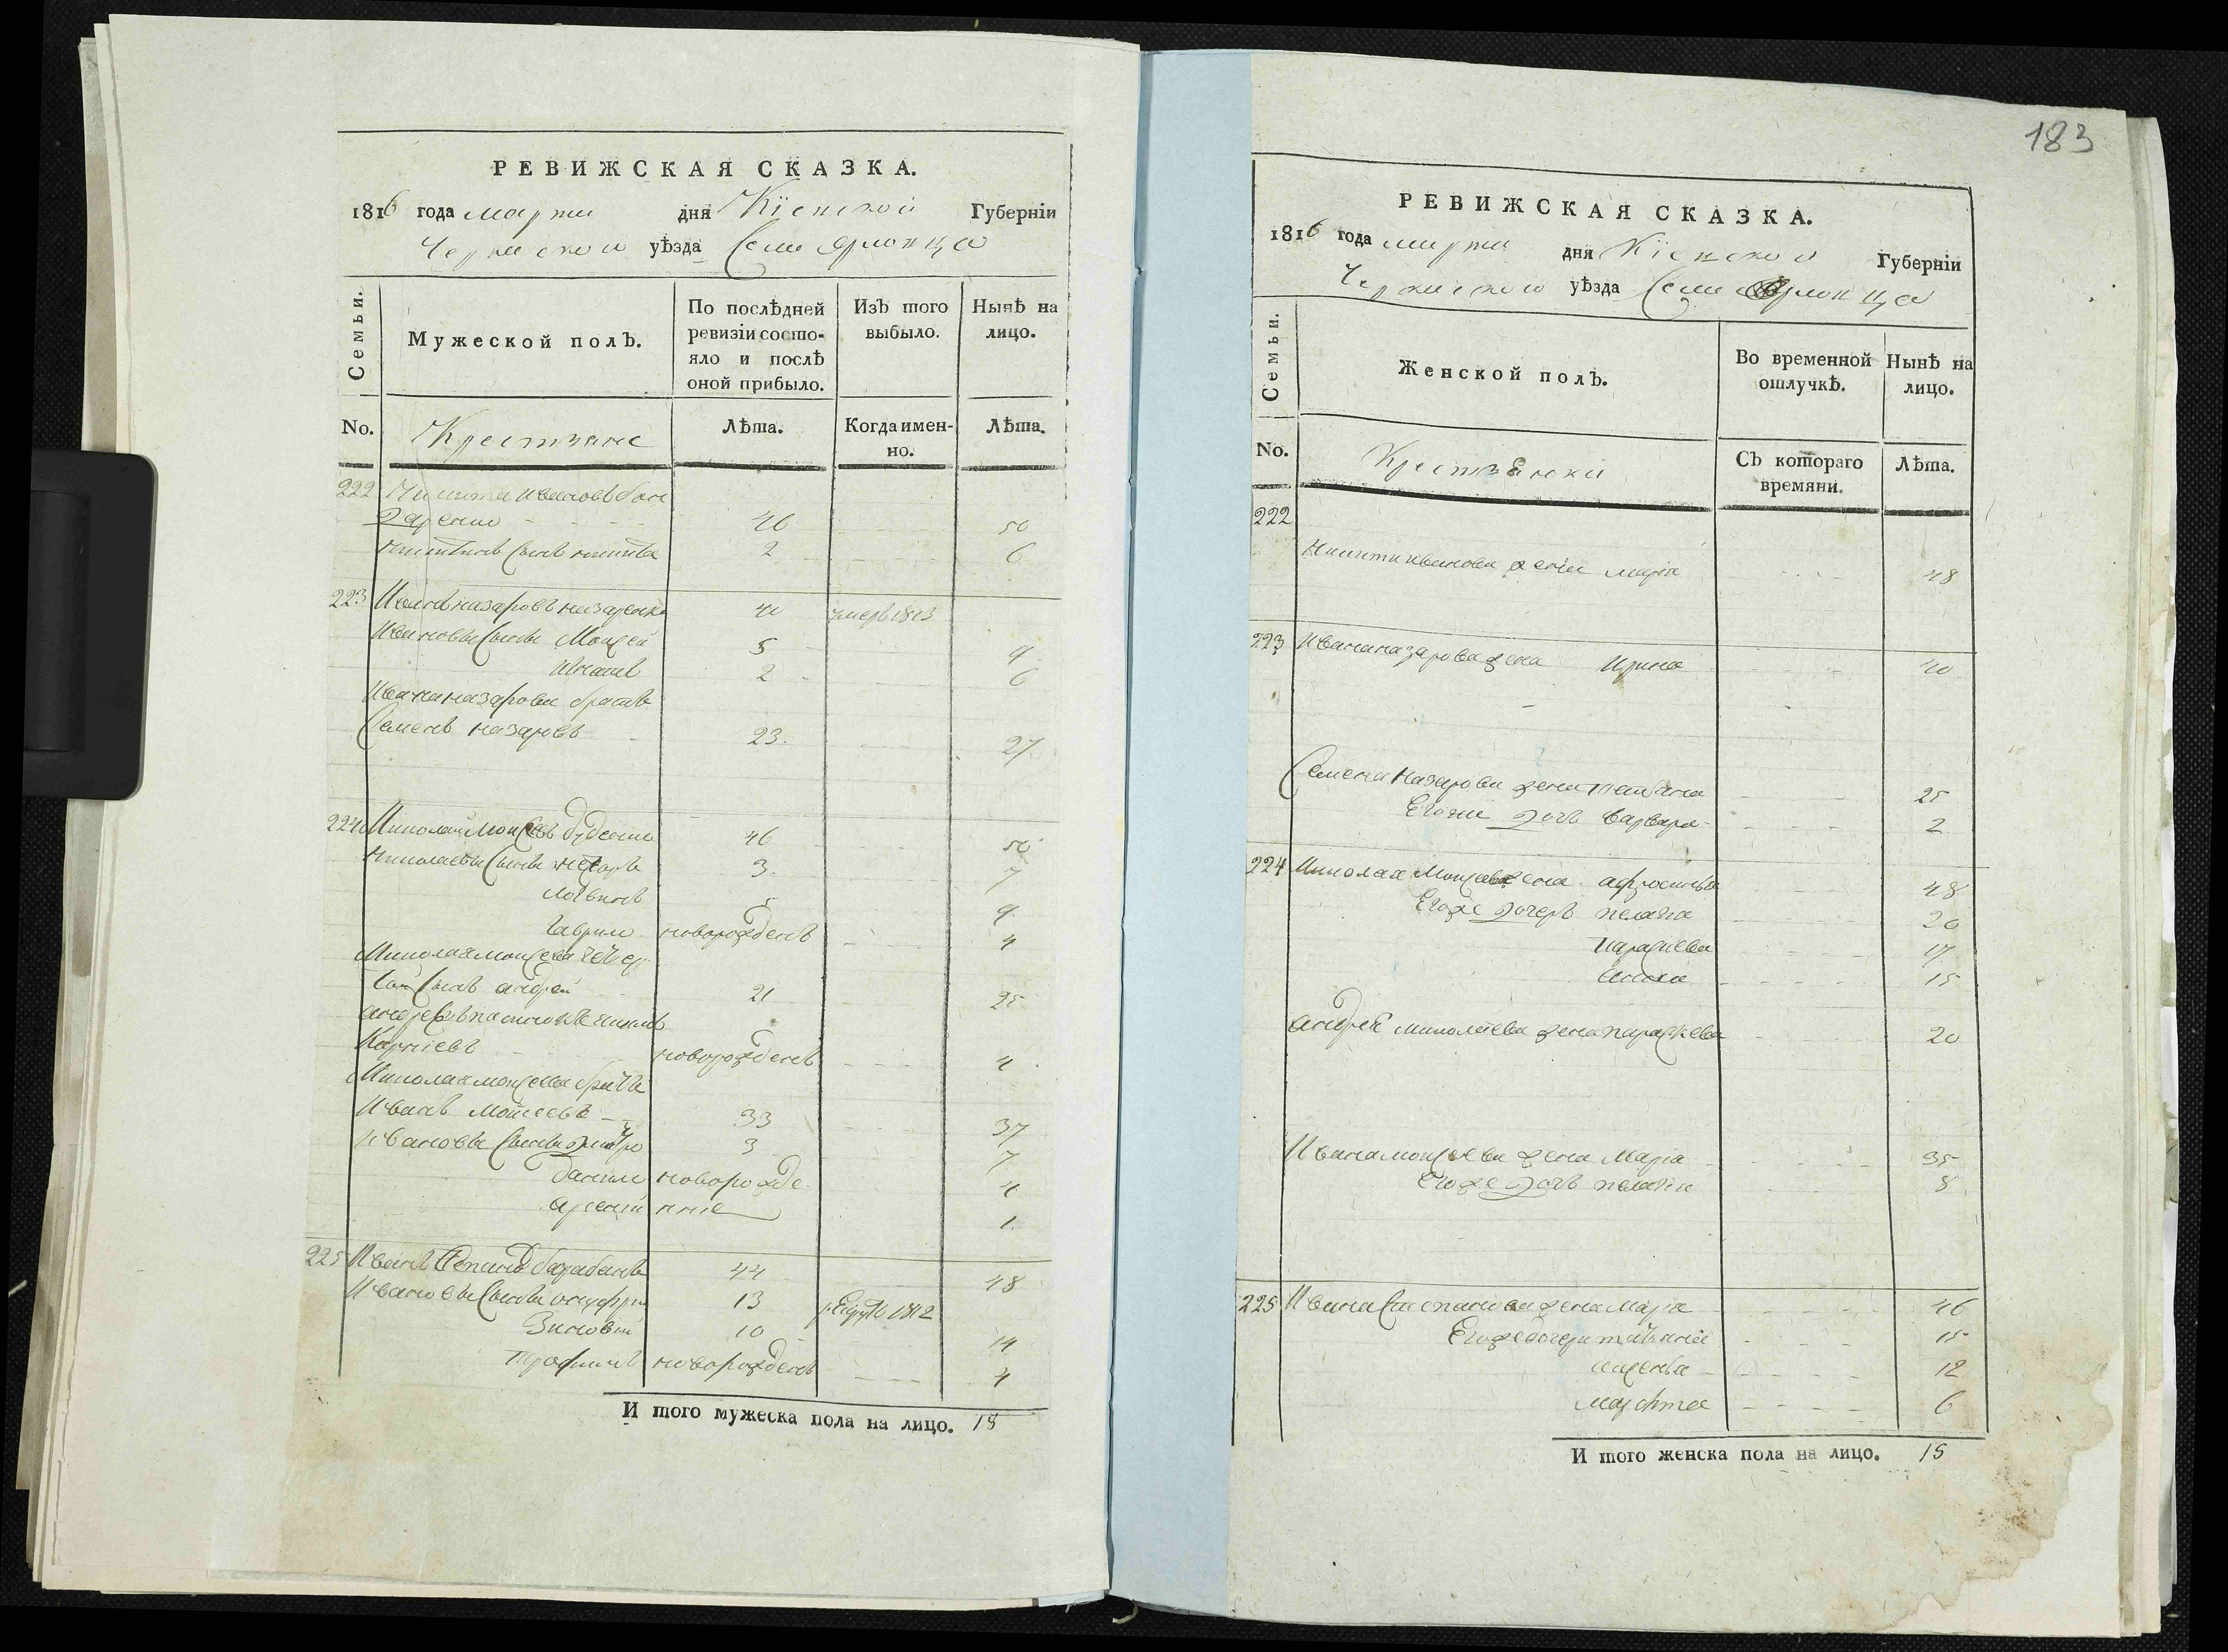 РЕВИЖСКАЯ СКАЗКА.
1816 года марта дня Кіевской Губерніи
Черкаского уѣзда Села Ярловца
Семьи.
Мужеской полъ.
По послѣдней ревизіи состояло и послѣ оной прибыло.
Изъ того выбыло.
Нынѣ на лицо.
No.
Крестьяне
Лѣта.
Когда именно.
Лѣта.
222 Никита Ивановъ
46 50
Никитинъ Сынъ Никита 2 6
223 Иванъ назаровъ назаренко 40 умеръ 1813
Ивановы Сыны Моисей 5 9
Игнатъ 2 6
Ивана назарова братъ
Семенъ назаровъ 23. 27
224 Николай Моисеевъ 46 50
Николаевы Сыны Несторъ 3. 7
Логвинъ 5 9.
Гаврило новорожденъ 4
Николая моисеева
Сынъ андрей 21 25
Карпіевъ новорожденъ 4.
Николая моисеева братъ
Иванъ Моисеевъ 33 37
Ивановы Сыны дмитро 3 7
Данило новорожде 4
арсеній нние 1.
225 Иванъ Степановъ барабанъ 44 48
Ивановы Сыны онуфрій 13 рекрутъ 1812
Зиновій 10 14
трофимъ новорожденъ 4
И того мужеска пола на лицо. 15
183
РЕВИЖСКАЯ СКАЗКА.
1816 года марта дня Кіевской Губерніи
Черкаского уѣзда Села Ярловца
Семьи.
Женской полъ.
Во временной отлучкѣ.
Нынѣ на лицо.
No.
Крестьянки
Съ котораго времяни.
Лѣта.
222
Никиты иванова жена марія 48
223 Ивана назарова жена Ирина 40
Семена назарова жена татьяна 25
Его же дочь Варвара 2
224 Николая Моисеева жена афросинья 48
Его же дочеръ пелагія 20
Параскева 17.
15
андрея николаева жена параскева 20
Ивана моисеева жена Марія 35
Его же дочь пелагія 8
225 Ивана Степанова жена Марія 46
Его же дочери татьяна 15
12
марфта 6
И того женска пола на лицо. 15